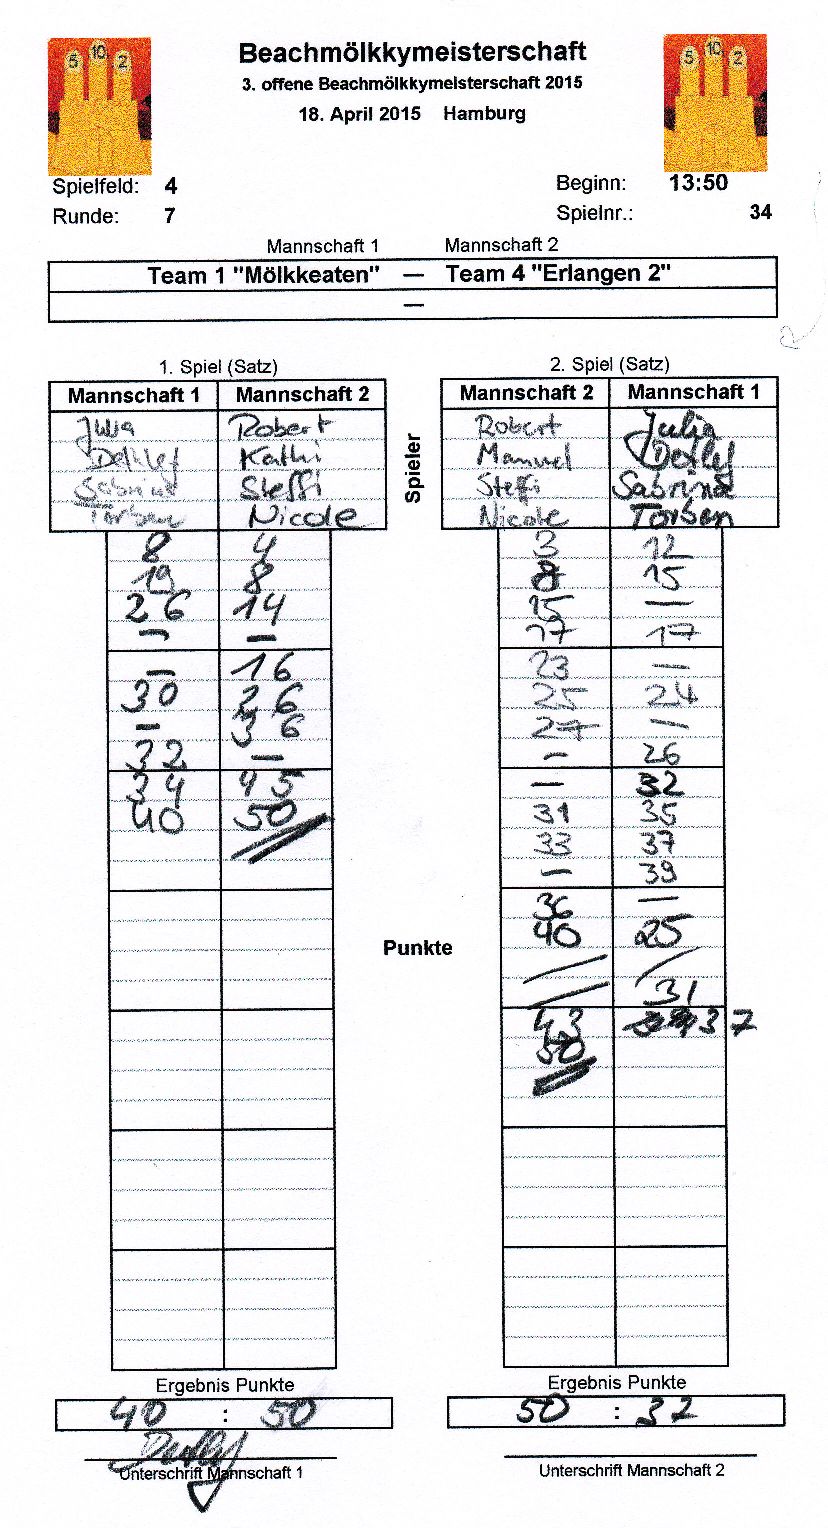 5 10 2
5 10 2
Beachmölkkymeisterschaft
3. offene Beachmölkkymeisterschaft 2015
18. April 2015 Hamburg
Spielfeld: 4 Beginn: 13:50
Runde: 7 Spielnr.: 34
Mannschaft 1 Mannschaft 2
Team 1 "Mölkkeaten" — Team 4 "Erlangen 2"
—
1. Spiel (Satz) 2. Spiel (Satz)
Mannschaft 1 Mannschaft 2 Mannschaft 2 Mannschaft 1
Spieler
Julia Robert Robert Julia
Detlef Kathi Manuel Detlef
Sabrina Steffi Steffi Sabrina
Torben Nicole Nicole Torben
8 4 3 12
19 8 8 15
26 14 15 —
— — 17 17
— 16 23 —
30 26 25 24
— 36 27 —
32 — — 26
34 45 — 32
40 50 31 35
33 37
— 39
36 —
40 25
Punkte
— /
— 31
43 37
50
Ergebnis Punkte Ergebnis Punkte
40 : 50 50 : 37
Unterschrift Mannschaft 1 Unterschrift Mannschaft 2